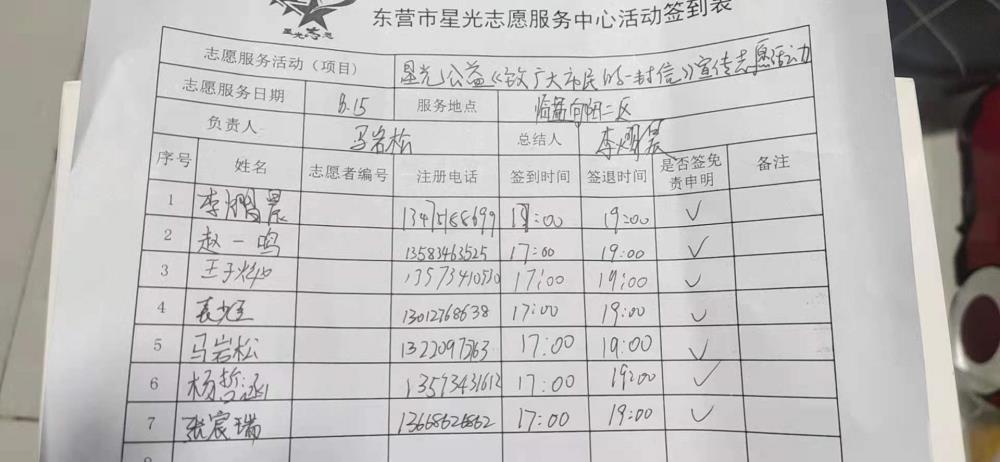 星光志愿
东营市星光志愿服务中心活动签到表
志愿服务活动（项目） 星光公益《致广大市民的一封信》宣传志愿活动
志愿服务日期 8.15 服务地点 临盘向阳二区
负责人 马岩松 总结人 李鹏晨
序号 姓名 志愿者编号 注册电话 签到时间 签退时间 是否签免责申明 备注
1 李鹏晨 19:00 ✓
2 赵一鸣 13583463525 17:00 19:00 ✓
3 王子灿 17:00 19:00 ✓
4 13012768638 17:00 19:00 ✓
5 马岩松 17:00 19:00 ✓
6 杨哲涵 13573431612 17:00 19:00 ✓
7 张宸瑞 17:00 19:00 ✓